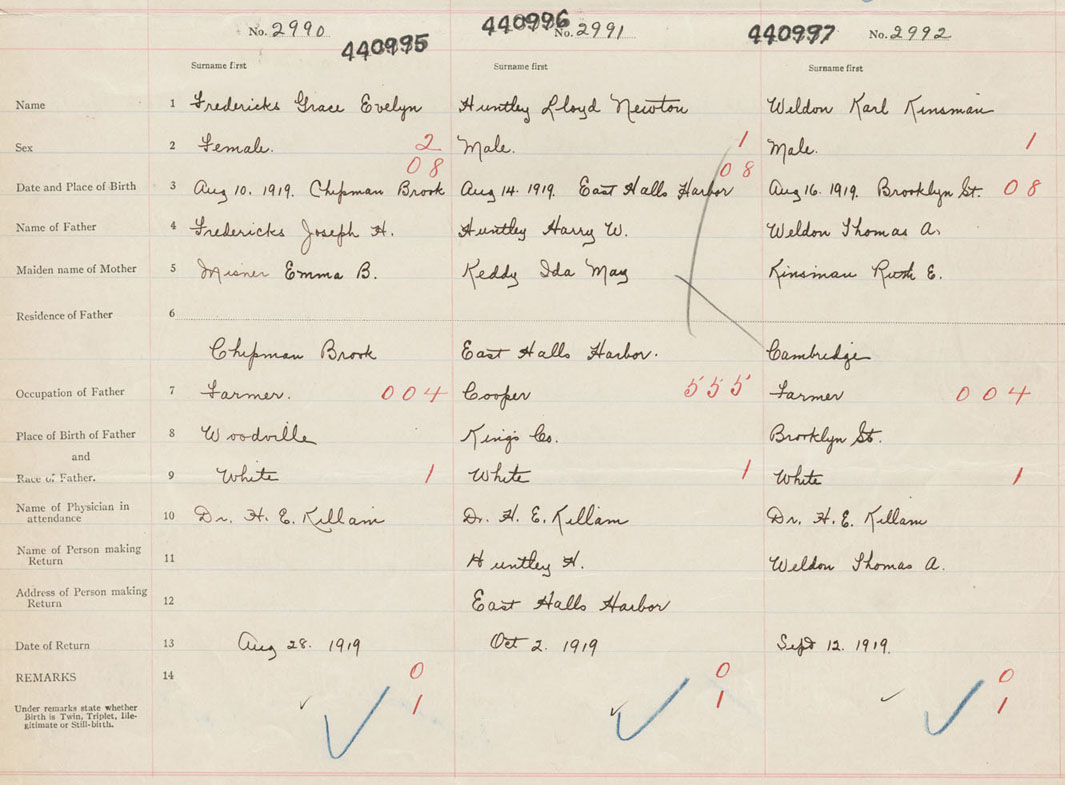 No. 2990 440995 440996 No. 2991 440997 No. 2992
Surname first Surname first Surname first
Name 1 Fredericks Grace Evelyn Huntley Lloyd Newton Weldon Karl Kinsman
Sex 2 Female. 2 Male. 1 Male. 1
08 08
Date and Place of Birth 3 Aug 10. 1919. Chipman Brook Aug 14. 1919. East Halls Harbor Aug 16. 1919. Brooklyn St. 08
Name of Father 4 Fredericks Joseph H. Huntley Harry W. Weldon Thomas A.
Maiden name of Mother 5 Misner Emma B. Keddy Ida May Kinsman Ruth E.
Residence of Father 6
Chipman Brook East Halls Harbor. Cambridge
Occupation of Father 7 Farmer. 004 Cooper 555 Farmer 004
Place of Birth of Father 8 Woodville Kings Co. Brooklyn St.
and
Race of Father. 9 White 1 White 1 White 1
Name of Physician in
attendance 10 Dr. H. E. Killam Dr. H. E. Killam Dr. H. E. Killam
Name of Person making
Return 11 Huntley H. Weldon Thomas A.
Address of Person making
Return 12 East Halls Harbor
Date of Return 13 Aug 28. 1919 Oct 2. 1919 Sept 12. 1919.
REMARKS 14 0 0 0
Under remarks state whether
Birth is Twin, Triplet, Ille-
gitimate or Still-birth. 1 1 1